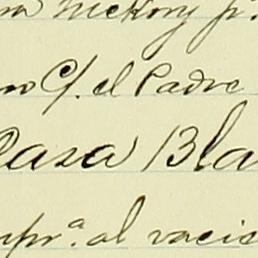 McKory Jr.
C/. el Padre
Casa Bla
mpr.ª al vacia